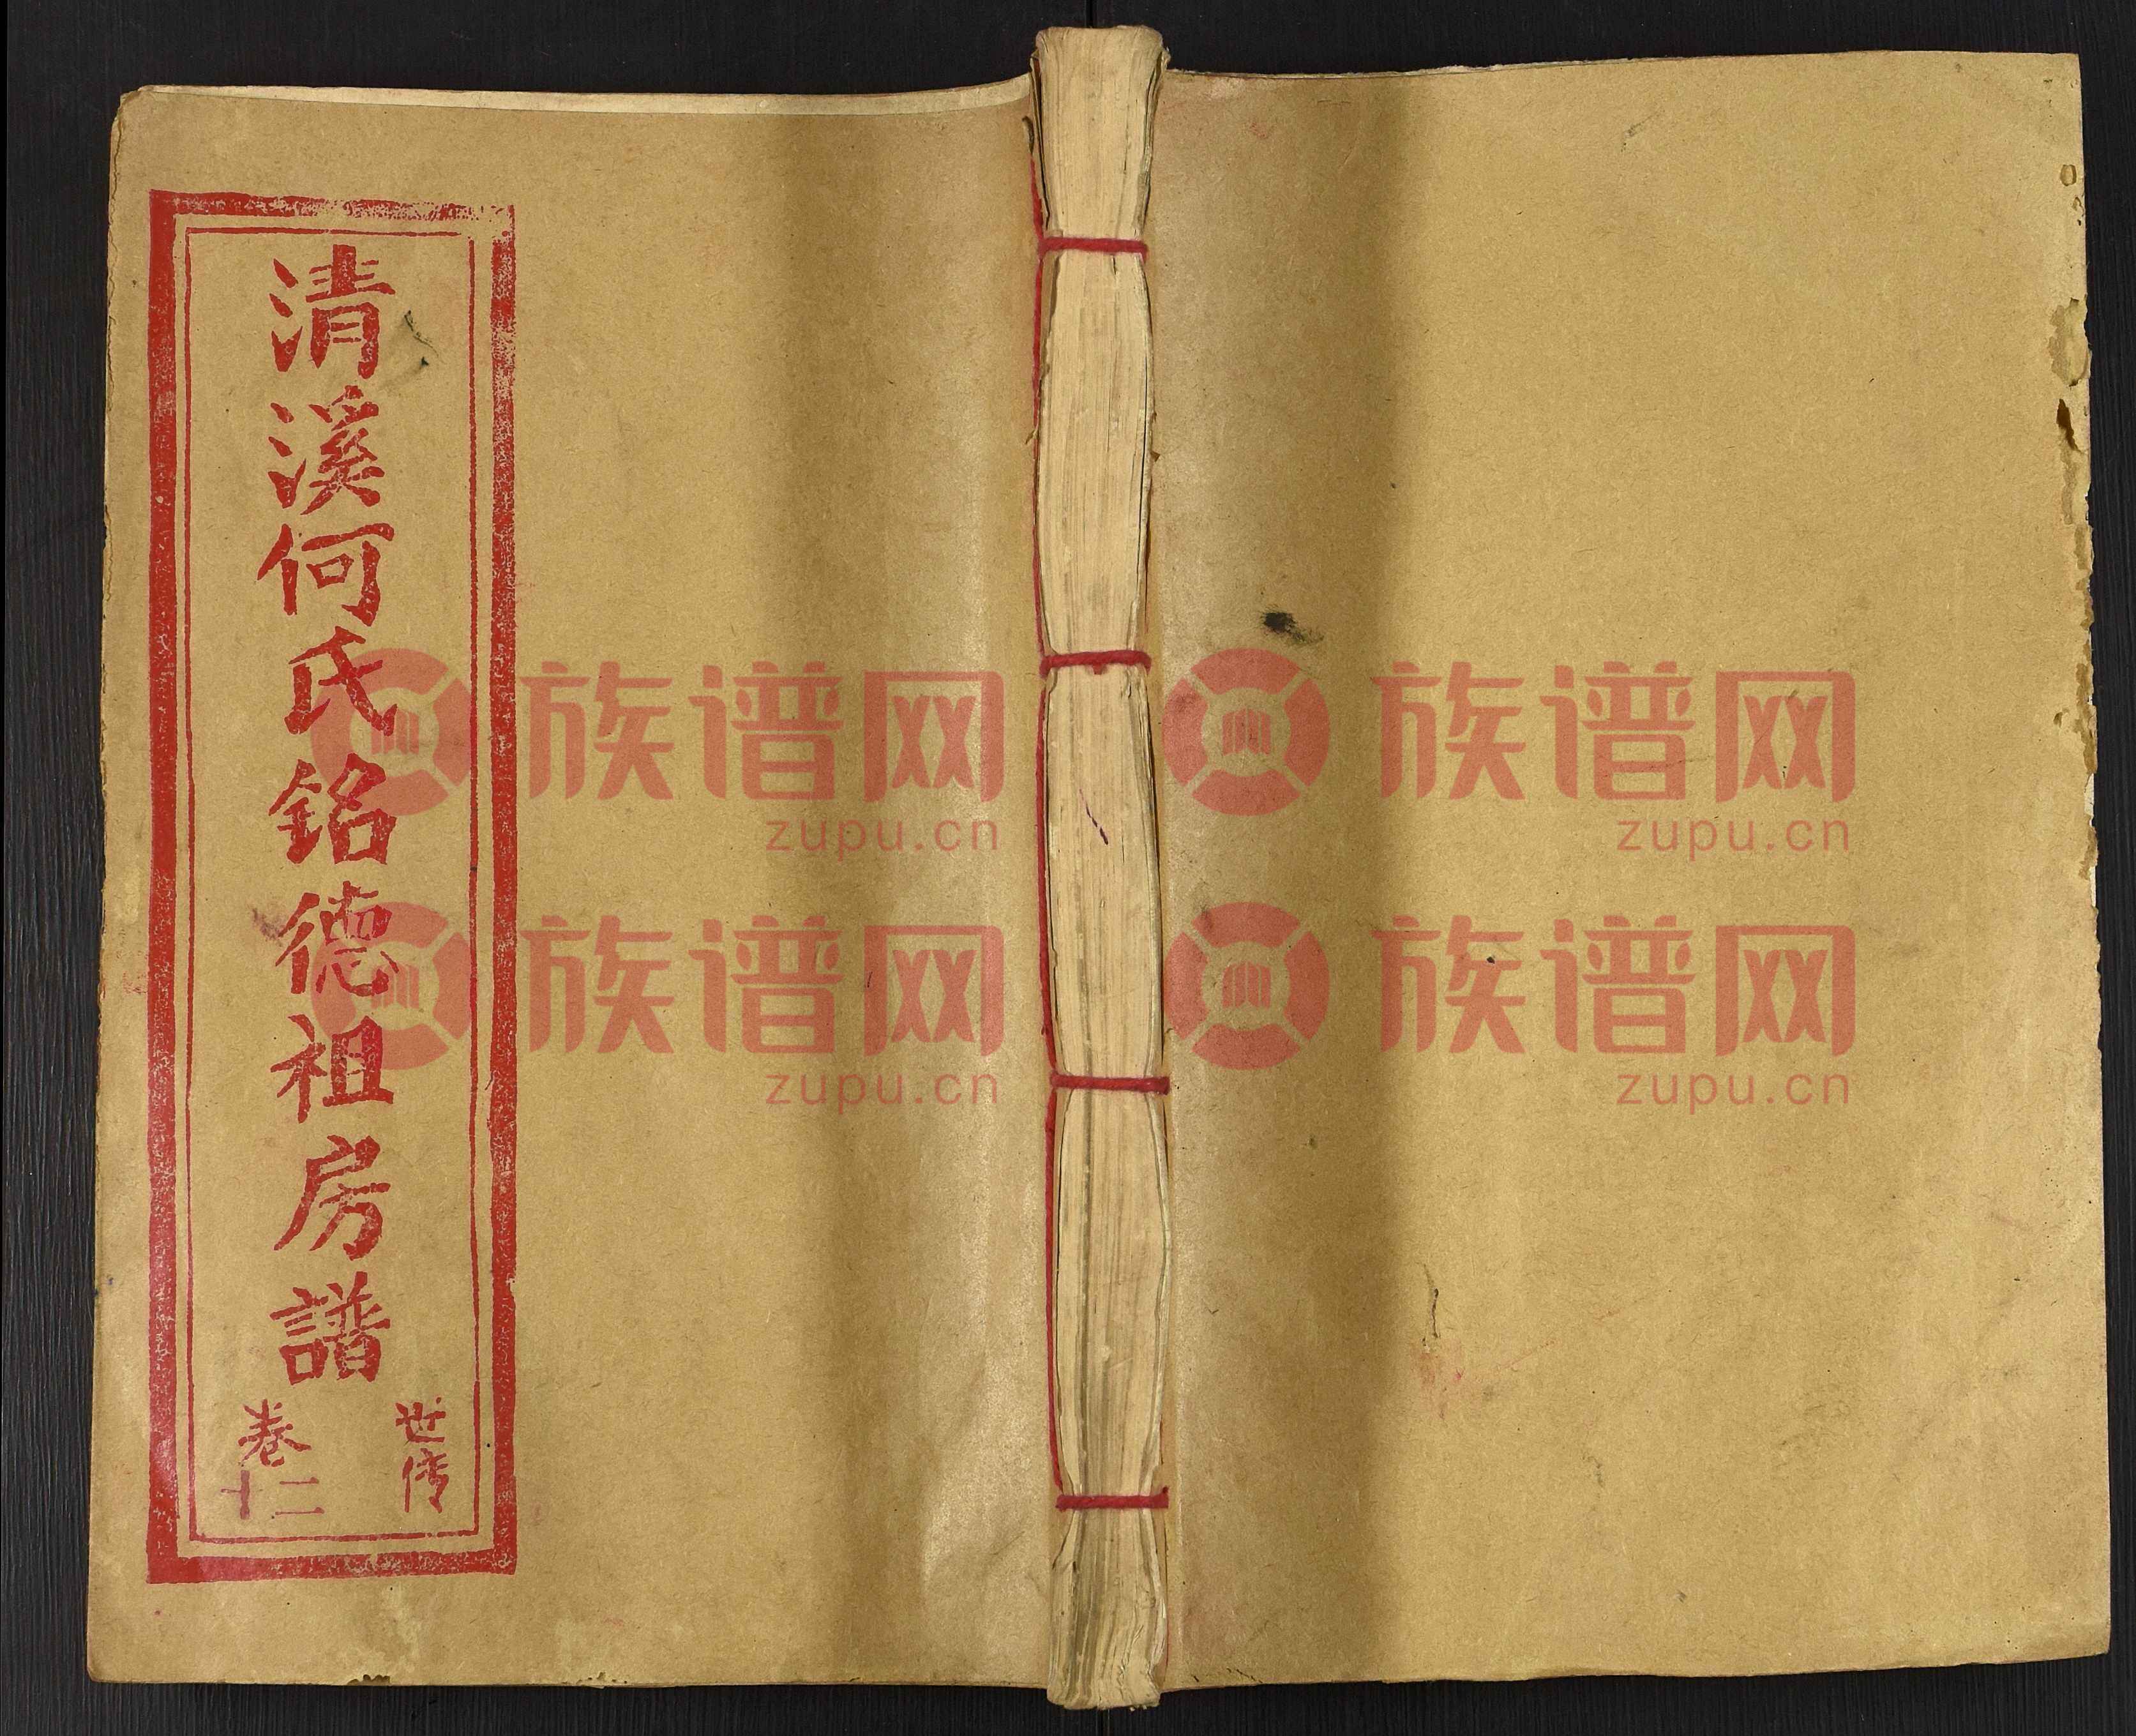 清溪何氏銘德祖房譜
世传
卷
十二
族谱网
zupu.cn
族谱网
zupu.cn
族谱网
zupu.cn
族谱网
zupu.cn